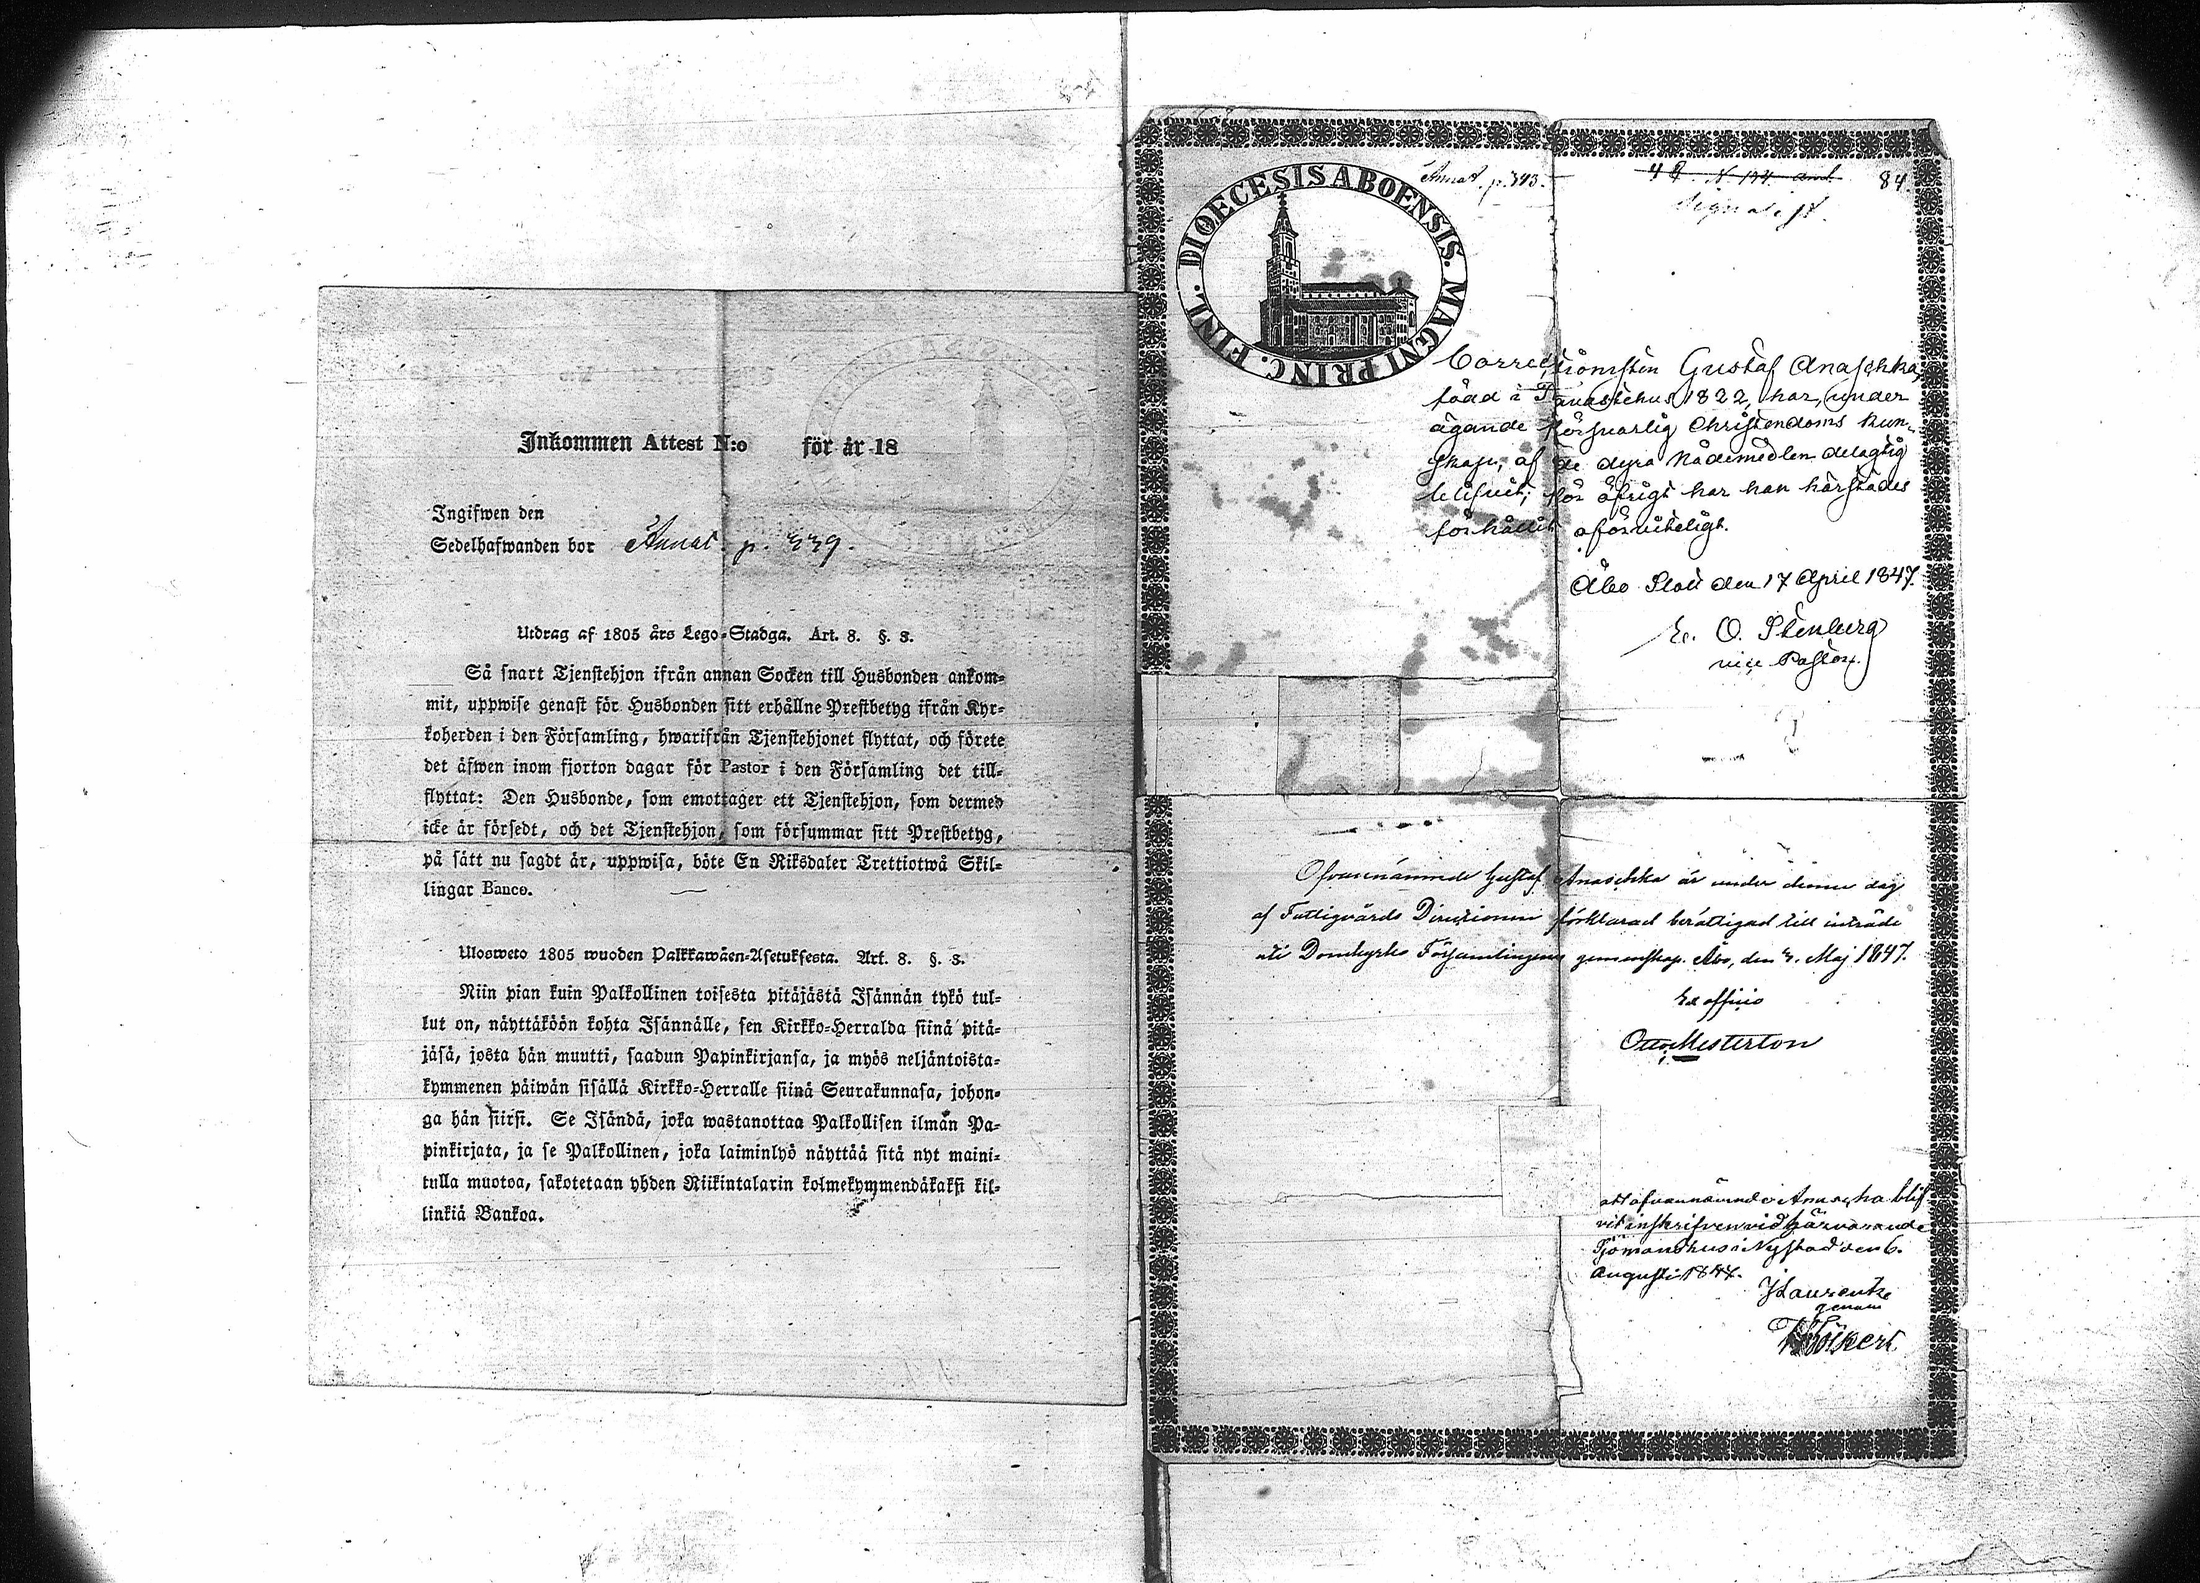 Inkommen Attest N:o för år 18
Ingifwen den
Sedelhafwanden bor Annat. p. 339.
Utdrag af 1805 års Lego-Stadga. Art. 8. §. 3.
Så snart Tjenstehjon ifrån annan Socken till Husbonden ankom-
mit, uppwise genast för Husbonden sitt erhållne Prestbetyg ifrån Kyr-
koherden i den Församling, hwarifrån Tjenstehjonet flyttat, och förete
det äfwen inom fjorton dagar för Pastor i den Församling det till-
flyttat: Den Husbonde, som emottager ett Tjenstehjon, som dermed
icke är försedt, och det Tjenstehjon, som försummar sitt Prestbetyg,
på sätt nu sagdt är, uppwisa, böte En Riksdaler Trettiotwå Skil-
lingar Banco.
Ulosweto 1805 wuoden Palkkawäen-Asetuksesta. Art. 8. §. 3.
Niin pian kuin Palkollinen toisesta pitäjästä Isännän tykö tul-
lut on, näyttäköön kohta Isännälle, sen Kirkko-Herralda siinä pitä-
jäsä, josta hän muutti, saadun Papinkirjansa, ja myös neljäntoista-
kymmenen päiwän sisällä Kirkko-Herralle siinä Seurakunnasa, johon-
ga hän siirsi. Se Isändä, joka wastanottaa Palkollisen ilmän Pa-
pinkirjata, ja se Palkollinen, joka laiminlyö näyttää sitä nyt maini-
tulla muotoa, sakotetaan yhden Riikintalarin kolmekymmendäkaksi kil-
linkiä Bankoa.
DIOECESIS ABOENSIS. MAGNI PRINC. FINL.
Annat. p. 343.
84.
Correctionisten Gustaf Anaschka,
född i Tavastehus 1822, har, under
ägande försvarlig Christendoms kun-
skap, af de dyra Nådemedlen delagtig
blifvit; för öfrigt har han härstädes
förhållit oförviteligt.
Åbo Slott den 17 April 1847.
O. Stenberg
vice Pastor.
Ofvannämnde Gustaf Anaschka är under denne dag
af Fattigvårds Direxionen förklarad berättigad till inträde
uti Domkyrko Församlingens gemenskap. Åbo, den 4. Maj 1847.
Ex officio
Otto Mesterton
att ofvannämnde Anascha blif-
vit inskrifven vid härvarande
Sjömanshus i Nystad den 6.
Augusti 1847.
genom